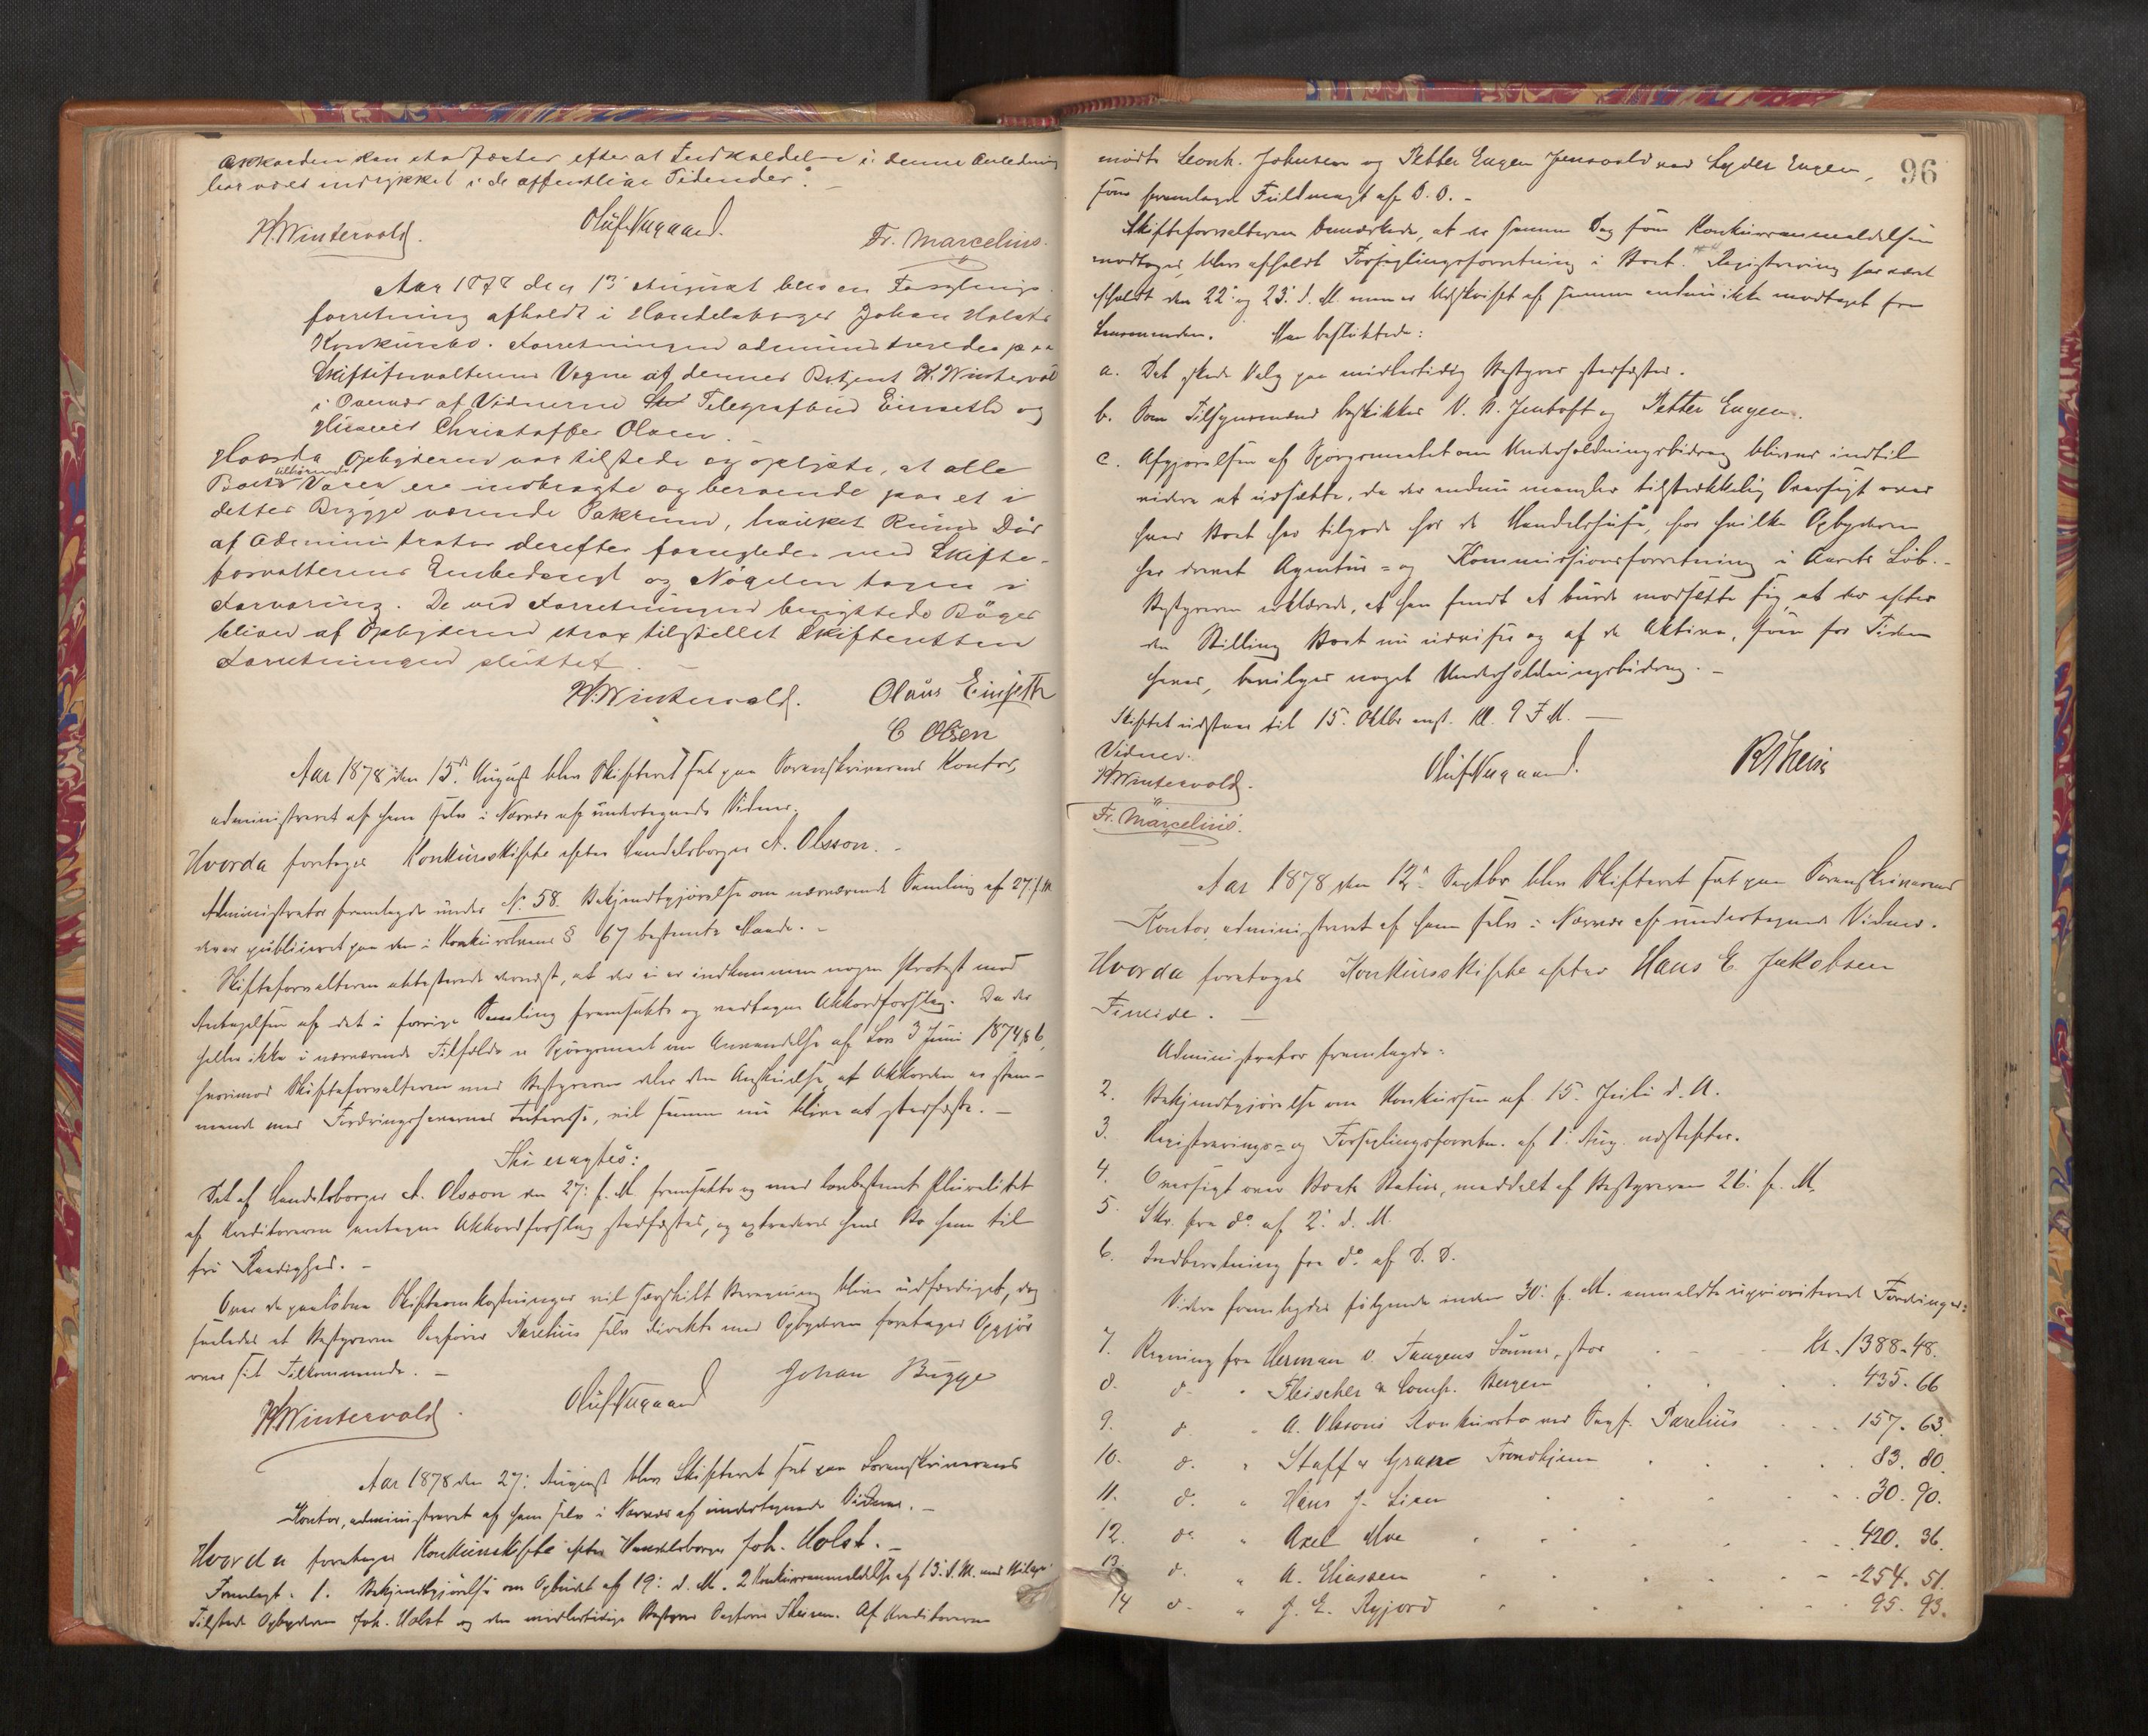 Akkorden kan stadfæstes efter at Indkaldelse i denne Anledning
har været indrykket i de offentlige Tidender.
H. Wintervold. Oluf Nugaard. Fr. Marcelius.
Aar 1878 den 13 August blev en Forseglings
forretning afholdt i Handelsborger Johan Holsts
Konkursbo. Forretningen administreredes paa
Skifteforvalterens Vegne af dennes Betjent H. Wintervold
i Overvær af Vidnerne Telegrafbud Einseth og
Christoffer Olsen.
Hvorda Opbyderen var tilstede og oplyste, at alle
Boets tilhørende Varer ere indbragte og beroende paa et i
dettes Brygge værende Pakrum, hvilket Rums Dør
af Administrator derefter forsegledes med Skifte-
forvalterens Embedssegl og Nøgelen tagen i
Forvaring. De ved Forretningen benyttede Bøger
bliver af Opbyderen strax tilstillet Skifteretten
Forretningen sluttet. –
H. Wintervold. Olaus Einseth
C Olsen
Aar 1878 den 15de August blev Skifteret sat paa Sorenskriverens Kontor,
administreret af ham selv i Nærvær af undertegnede Vidner.
Hvorda foretoges Konkursskifte efter Handelsborger A. Olsson. –
Administrator fremlagde under No. 58. Bekjendtgjørelse om nærværende Samling af 27. f. M.
der er publiceret paa den i Konkurslovens § 67 bestemte Maade. –
Skifteforvalteren attesterede dernæst, at der ei er indkommen nogen Protest mod
Antagelsen af det i forrige Samling fremsatte og vedtagne Akkordforslag. Da der
heller ikke i nærværende Tilfælde er Spørgsmaal om Anvendelse af Lov 3 Juni 1874 § 6,
hvorimod Skifteforvalteren med Bestyreren deler den Anskuelse, at Akkorden er stem-
mende med Fordringshavernes Interesse, vil samme nu blive at stadfæste. –
Thi eragtes:
Det af Handelsborger A. Olsson den 27. f. M. fremsatte og med lovbestemt Pluralitet
af Kreditorerne antagne Akkordforslag stadfæstes, og extraderes hans Bo ham til
fri Raadighed. –
Over de paaløbne Skifteomkostninger vil særskilt Beregning blive udfærdiget, dog
saaledes at Bestyreren Sagfører Parelius selv direkte med Opbyderen foretager Opgjør
over sit Tilkommende. –
H Wintervold Oluf Nugaard Johan Bugge
Aar 1878 den 27. August blev Skifteret sat paa Sorenskriverens
Kontor, administreret af ham selv i Nærvær af undertegnede Vidner. –
Hvorda foretoges Konkursskifte efter Handelsborger Joh. Holst. –
Fremlagt. 1. Bekjendtgjørelse om Opbudet af 19. d. M. 2 Konkursanmeldelse af 13. d. M. med Bilage
Tilstede Opbyderen Joh. Holst og den midlertidige Bestyrer Sagfører Theisen. Af Kreditorerne
96
mødte Leonh. Johnsen og Petter Engen ved Lyder Engen,
som fremlagde Fuldmagt af D. D. –
Skifteforvalteren bemærkede, at der samme Dag som Konkursanmeldelsen
modtoges, blev afholdt Forseglingsforretning i Boet. Registrering har været
afholdt den 22. og 23. d. M. men er Udskriftet af samme endnu ikke modtaget fra
Lensmanden. Man besluttede:
a. Det skede Valg paa midlertidig Bestyrer stadfæstes.
b. Som Tilsynsmænd beskikkes V. B. Jentoft og Petter Engen.
c. Afgjørelsen af Spørgsmaalet om Underholdningsbidrag bliver indtil
videre at udsætte, da der endnu mangler tilstrækkelig Oversigt over
hvad Boet har tilgode hos de Handelshuse, for hvilke Opbyderen
har drevet Agentur- og Kommissionsforretning i Aarets Løb. –
Bestyreren erklærede, at han fandt at burde modsætte sig, at der efter
den Stilling Boet nu udviser og af de Aktiva, som for Tiden
haves, bevilges noget Underholdningsbidrag. –
Skiftet udstaar til 15. Oktbr. enst. Kl. 9 F. M. –
Vidner.
H Wintervold. Oluf Nugaard. R Theis
Fr. Marcelius.
Aar 1878 den 12. Septbr blev Skifteret sat paa Sorenskriverens
Kontor administreret af ham selv i Nærvær af undertegnede Vidner.
Hvorda foretoges Konkursskifte efter Hans E. Jakobsen
Fineide. –
Administrator fremlagde:
2. Bekjendtgjørelse om Konkursen af 15. Juli d. A.
3. Registrerings- og Forseglingsforretn. af 1. Aug. næstefter.
4. Oversigt over Boets Status, meddelt af Bestyreren 26. f. M.
5. Skr. fra do. af 2. d. M.
6. Indberetning fra do. af D. D.
Videre fremlagdes følgende inden 30. f. M. anmeldte uprioriterede Fordringer:
7. Regning fra Herman v. Tangens Sønner, stor Kr. 1388.48.
8. d. " Fleischer & Comp. Bergen 435.66
9. d. " A. Olssons Konkursbo ved Sagf. Parelius 157.63.
10. d. " Staff & Grane Trondhjem 83.80.
11. d. " Hans J. Lien 30.90.
12. do " Axel Moe 420.36.
13. d. " A. Eliassen 254.51.
14 d. " J. E. Ryjord 95.93.